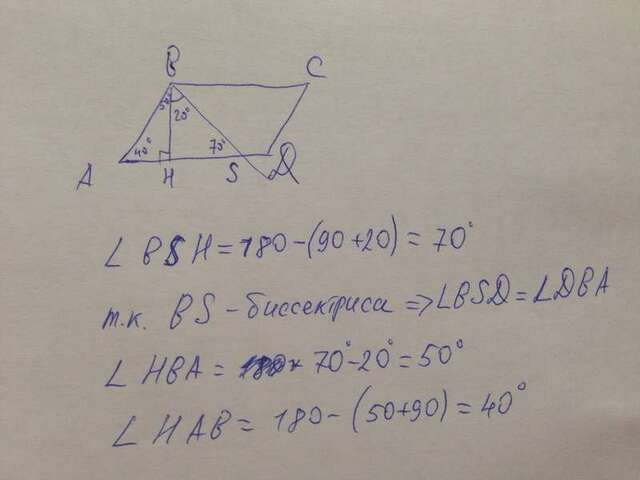 B C
50° 20°
40° 70°
A H S D
∠BSH = 180-(90+20) = 70°
т.к. BS - биссектриса => ∠BSD = ∠DBA
∠HBA = 70°-20° = 50°
∠HAB = 180-(50+90) = 40°